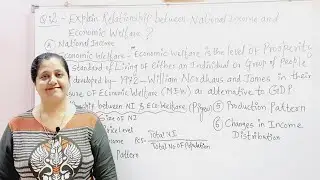 Explain Relationship between National Income and
Economic Welfare ?
National Income
Economic Welfare - Economic Welfare is the level of Prosperity
Standard of Living of Either an Individual or Group of People
developed by - 1972 - William Nordhaus and James in their
of Economic Welfare (MEW) as alternative to GDP.
between NI & Eco-Welfare (Pigou)
⑤ Production Pattern
Size of NI
⑥ Changes in Income
Distribution
Level
PCI = Total NI / Total No of Population
Pattern